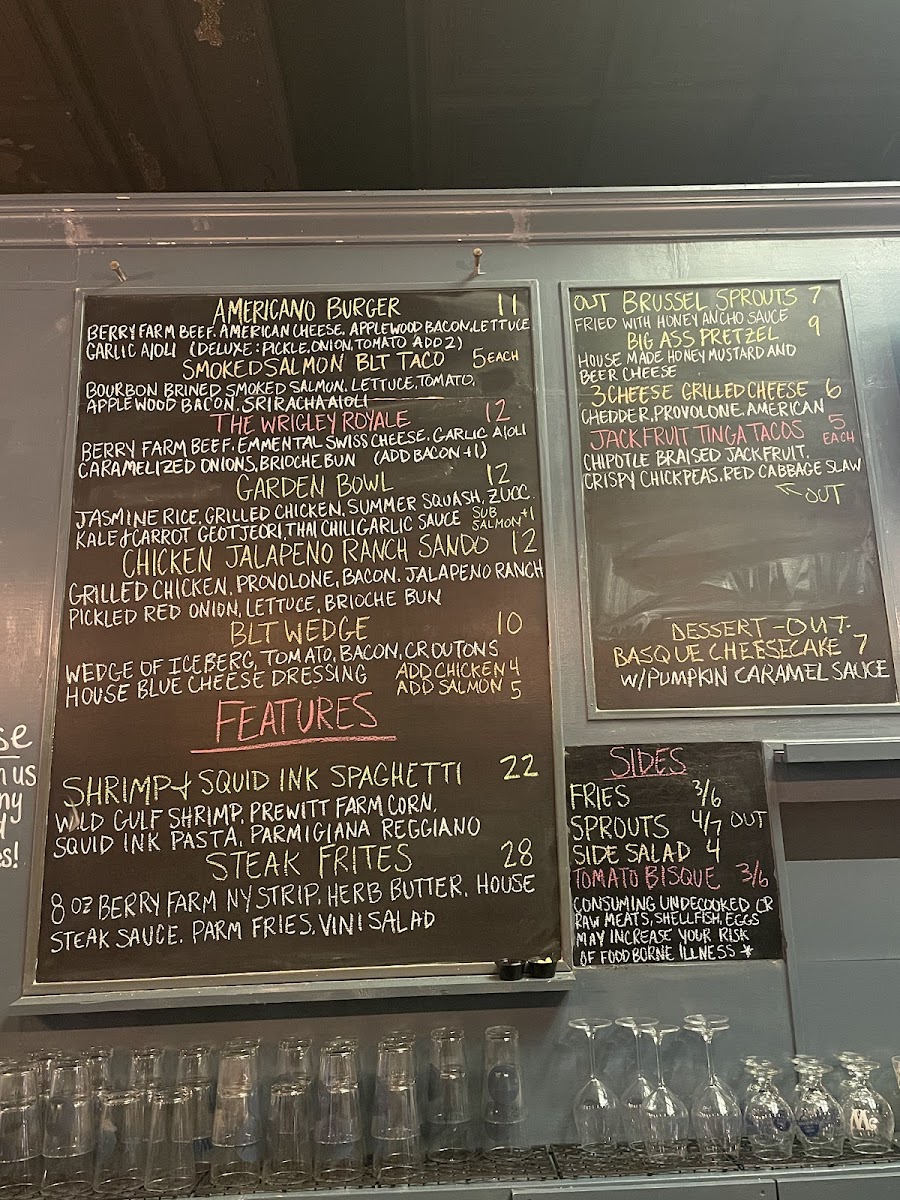 AMERICANO BURGER 11
BERRY FARM BEEF. AMERICAN CHEESE. APPLEWOOD BACON, LETTUCE
GARLIC AJOLI (DELUXE: PICKLE, ONION, TOMATO ADD 2)
SMOKED SALMON BLT TACO 5 EACH
BOURBON BRINED SMOKED SALMON. LETTUCE, TOMATO,
APPLEWOOD BACON. SRIRACHA AIOLI
THE WRIGLEY ROYALE 12
BERRY FARM BEEF, EMMENTAL SWISS CHEESE. GARLIC AJOLI
CARAMELIZED ONIONS, BRIOCHE BUN (ADD BACON +1)
GARDEN BOWL 12
JASMINE RICE, GRILLED CHICKEN, SUMMER SQUASH, ZUCC.
KALE & CARROT GEOTJEORI, THAI CHILI GARLIC SAUCE SUB SALMON +1
CHICKEN JALAPENO RANCH SANDO 12
GRILLED CHICKEN, PROVOLONE, BACON. JALAPENO RANCH
PICKLED RED ONION, LETTUCE, BRIOCHE BUN
BLT WEDGE 10
WEDGE OF ICEBERG, TOMATO, BACON, CROUTONS
HOUSE BLUE CHEESE DRESSING ADD CHICKEN 4
ADD SALMON 5
FEATURES
SHRIMP & SQUID INK SPAGHETTI 22
WILD GULF SHRIMP, PREWITT FARM CORN,
SQUID INK PASTA, PARMIGIANA REGGIANO
STEAK FRITES 28
8 OZ BERRY FARM NY STRIP, HERB BUTTER, HOUSE
STEAK SAUCE. PARM FRIES, VINI SALAD
OUT BRUSSEL SPROUTS 7
FRIED WITH HONEY ANCHO SAUCE
BIG ASS PRETZEL 9
HOUSE MADE HONEY MUSTARD AND
BEER CHEESE
3 CHEESE GRILLED CHEESE 6
CHEDDER, PROVOLONE, AMERICAN
JACKFRUIT TINGA TACOS 5 EACH
CHIPOTLE BRAISED JACKFRUIT,
CRISPY CHICKPEAS, RED CABBAGE SLAW
OUT
DESSERT - OUT.
BASQUE CHEESECAKE 7
W/ PUMPKIN CARAMEL SAUCE
SIDES
FRIES 3/6
SPROUTS 4/7 OUT
SIDE SALAD 4
TOMATO BISQUE 3/6
CONSUMING UNDECOOKED OR
RAW MEATS, SHELLFISH, EGGS
MAY INCREASE YOUR RISK
OF FOOD BORNE ILLNESS *